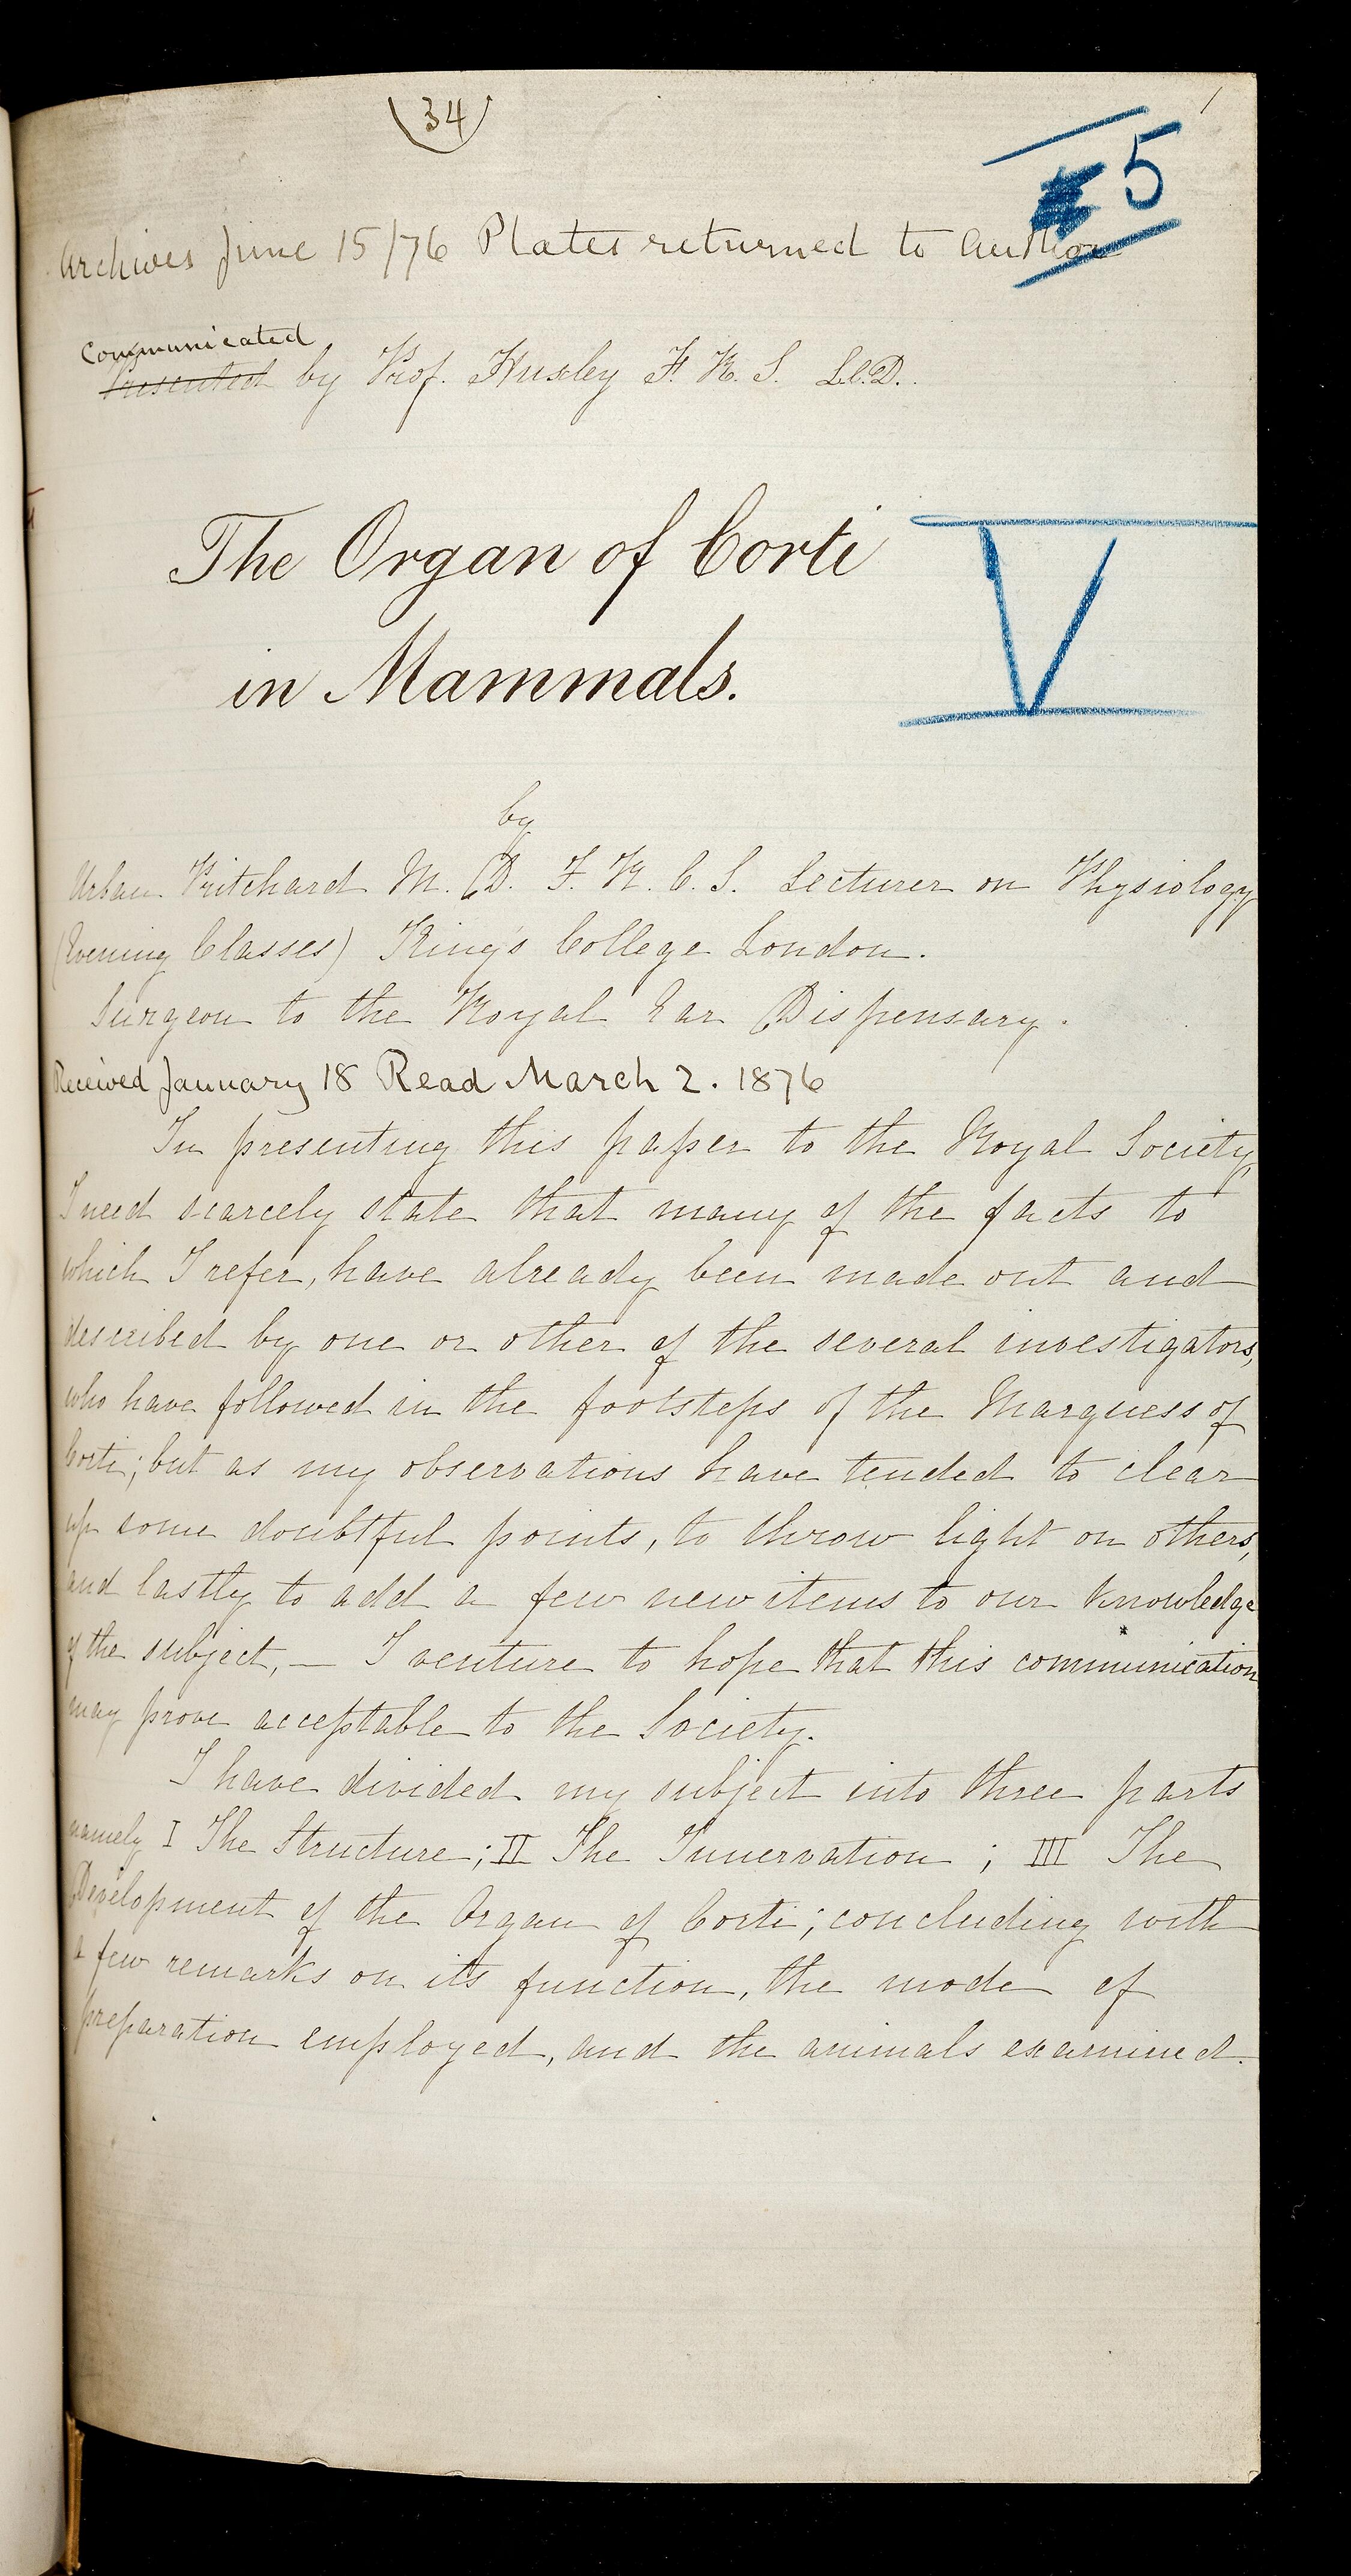 34
1
5
Archives June 15/76 Plates returned to Author
Communicated
Presented by Prof. Huxley F. R. S. LL.D.
The Organ of Corti
V
in Mammals.
by
Urban Pritchard M. D. F. R. C. S. Lecturer on Physiology
(Evening Classes) King's College London.
Surgeon to the Royal Ear Dispensary.
Received January 18 Read March 2. 1876
In presenting this paper to the Royal Society,
I need scarcely state that many of the facts to
which I refer, have already been made out and
described by one or other of the several investigators,
who have followed in the footsteps of the Marquess of
Corti; but as my observations have tended to clear
up some doubtful points, to throw light on others,
and lastly to add a few new items to our knowledge
of the subject, — I venture to hope that this communication
may prove acceptable to the Society.
I have divided my subject into three parts
namely I The Structure; II The Innervation; III The
Development of the Organ of Corti; concluding with
a few remarks on its function, the mode of
preparation employed, and the animals examined.